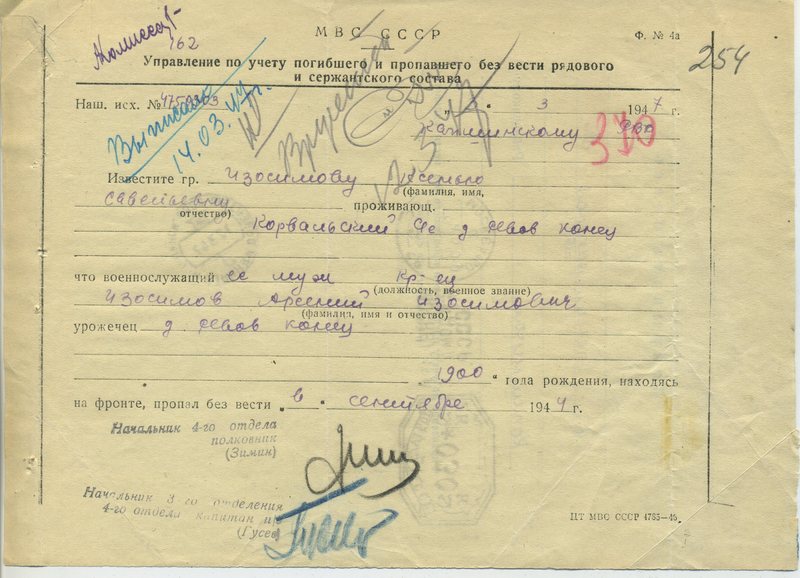 МВС СССР
Ф. № 4а
162
254
Управление по учету погибшего и пропавшего без вести рядового
и сержантского состава
Наш. исх. №
3 1947 г.
Выписано
14.03.47г.
Вручена
370
Известите гр. Изосимову Ксенью
(фамилия, имя,
Савельевну проживающ.
отчество)
Корвальский с/с д Левов конец
что военнослужащий ее муж кр-ец
(должность, военное звание)
Изосимов Арсений Изосимович
(фамилия, имя и отчество)
урожечец д Левов конец
1900 года рождения, находясь
на фронте, пропал без вести „в" сентябре 1944 г.
Начальник 4-го отдела
полковник
(Зимин)
Начальник 3-го отделения
4-го отдела капитан
(Гусев)
ЦТ МВС СССР 4785—46